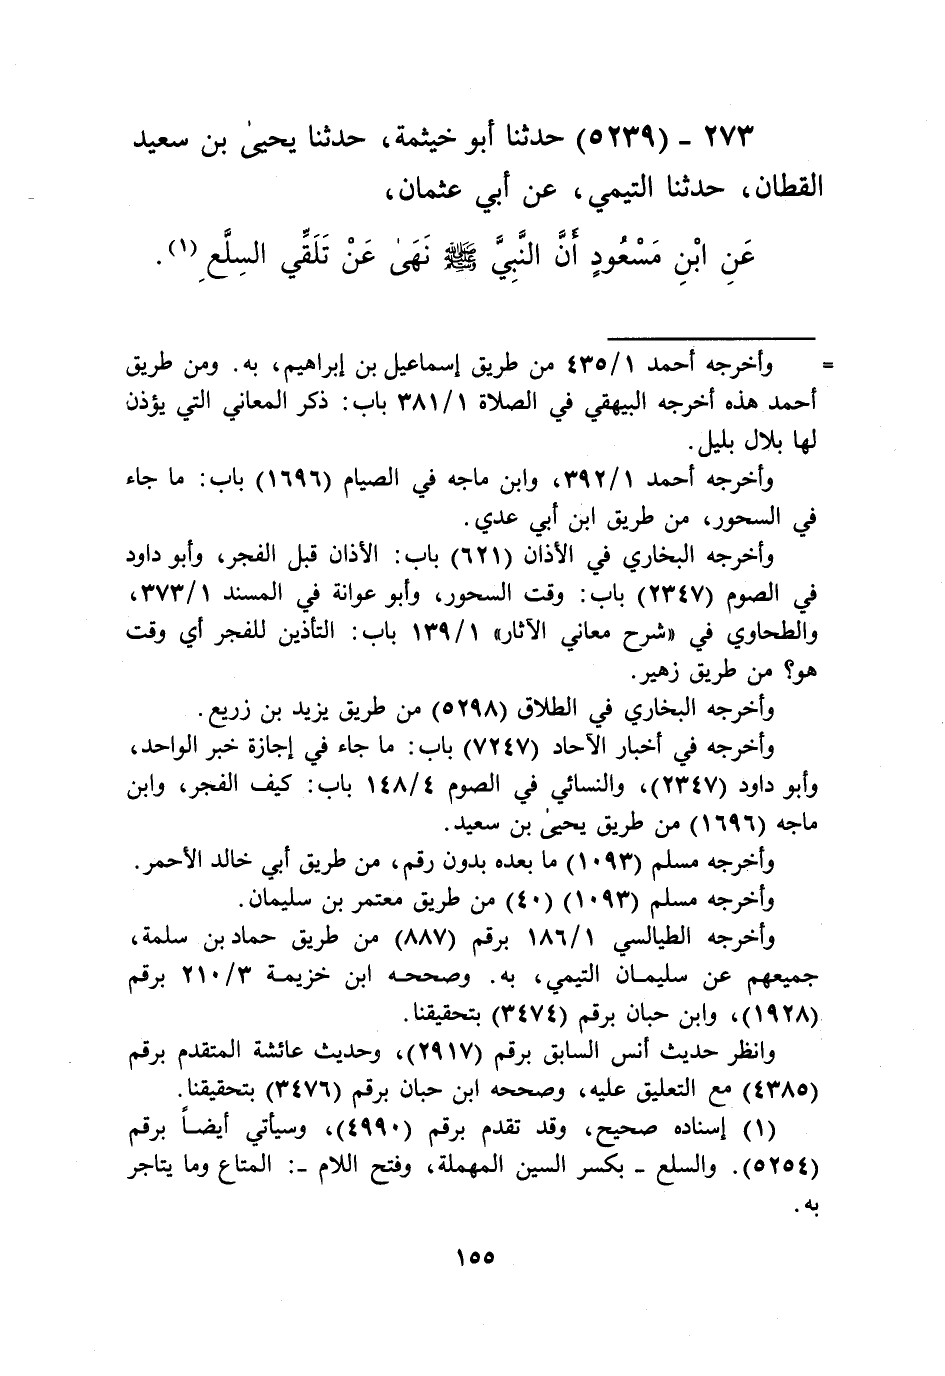 ٢٧٣ - (٥٢٣٩) حدثنا أبو خيثمة، حدثنا يحيىٰ بن سعيد
القطان، حدثنا التيمي، عن أبي عثمان،
عَنِ ابْنِ مَسْعُودٍ أَنَّ النَّبِيَّ ﷺ نَهَىٰ عَنْ تَلَقِّي السِلَّعِ (١).
= وأخرجه أحمد ٤٣٥/١ من طريق إسماعيل بن إبراهيم، به. ومن طريق
أحمد هذه أخرجه البيهقي في الصلاة ٣٨١/١ باب: ذكر المعاني التي يؤذن
لها بلال بليل.
وأخرجه أحمد ٣٩٢/١، وابن ماجه في الصيام (١٦٩٦) باب: ما جاء
في السحور، من طريق ابن أبي عدي.
وأخرجه البخاري في الأذان (٦٢١) باب: الأذان قبل الفجر، وأبو داود
في الصوم (٢٣٤٧) باب: وقت السحور، وأبو عوانة في المسند ٣٧٣/١،
والطحاوي في «شرح معاني الآثار» ١٣٩/١ باب: التأذين للفجر أي وقت
هو؟ من طريق زهير.
وأخرجه البخاري في الطلاق (٥٢٩٨) من طريق يزيد بن زريع.
وأخرجه في أخبار الآحاد (٧٢٤٧) باب: ما جاء في إجازة خبر الواحد،
وأبو داود (٢٣٤٧)، والنسائي في الصوم ١٤٨/٤ باب: كيف الفجر، وابن
ماجه (١٦٩٦) من طريق يحيىٰ بن سعيد.
وأخرجه مسلم (١٠٩٣) ما بعده بدون رقم، من طريق أبي خالد الأحمر.
وأخرجه مسلم (١٠٩٣) (٤٠) من طريق معتمر بن سليمان.
وأخرجه الطيالسي ١٨٦/١ برقم (٨٨٧) من طريق حماد بن سلمة،
جميعهم عن سليمان التيمي، به. وصححه ابن خزيمة ٢١٠/٣ برقم
(١٩٢٨)، وابن حبان برقم (٣٤٧٤) بتحقيقنا.
وانظر حديث أنس السابق برقم (٢٩١٧)، وحديث عائشة المتقدم برقم
(٤٣٨٥) مع التعليق عليه، وصححه ابن حبان برقم (٣٤٧٦) بتحقيقنا.
(١) إسناده صحيح، وقد تقدم برقم (٤٩٩٠)، وسيأتي أيضاً برقم
(٥٢٥٤). والسلع - بكسر السين المهملة، وفتح اللام -: المتاع وما يتاجر
به.
١٥٥